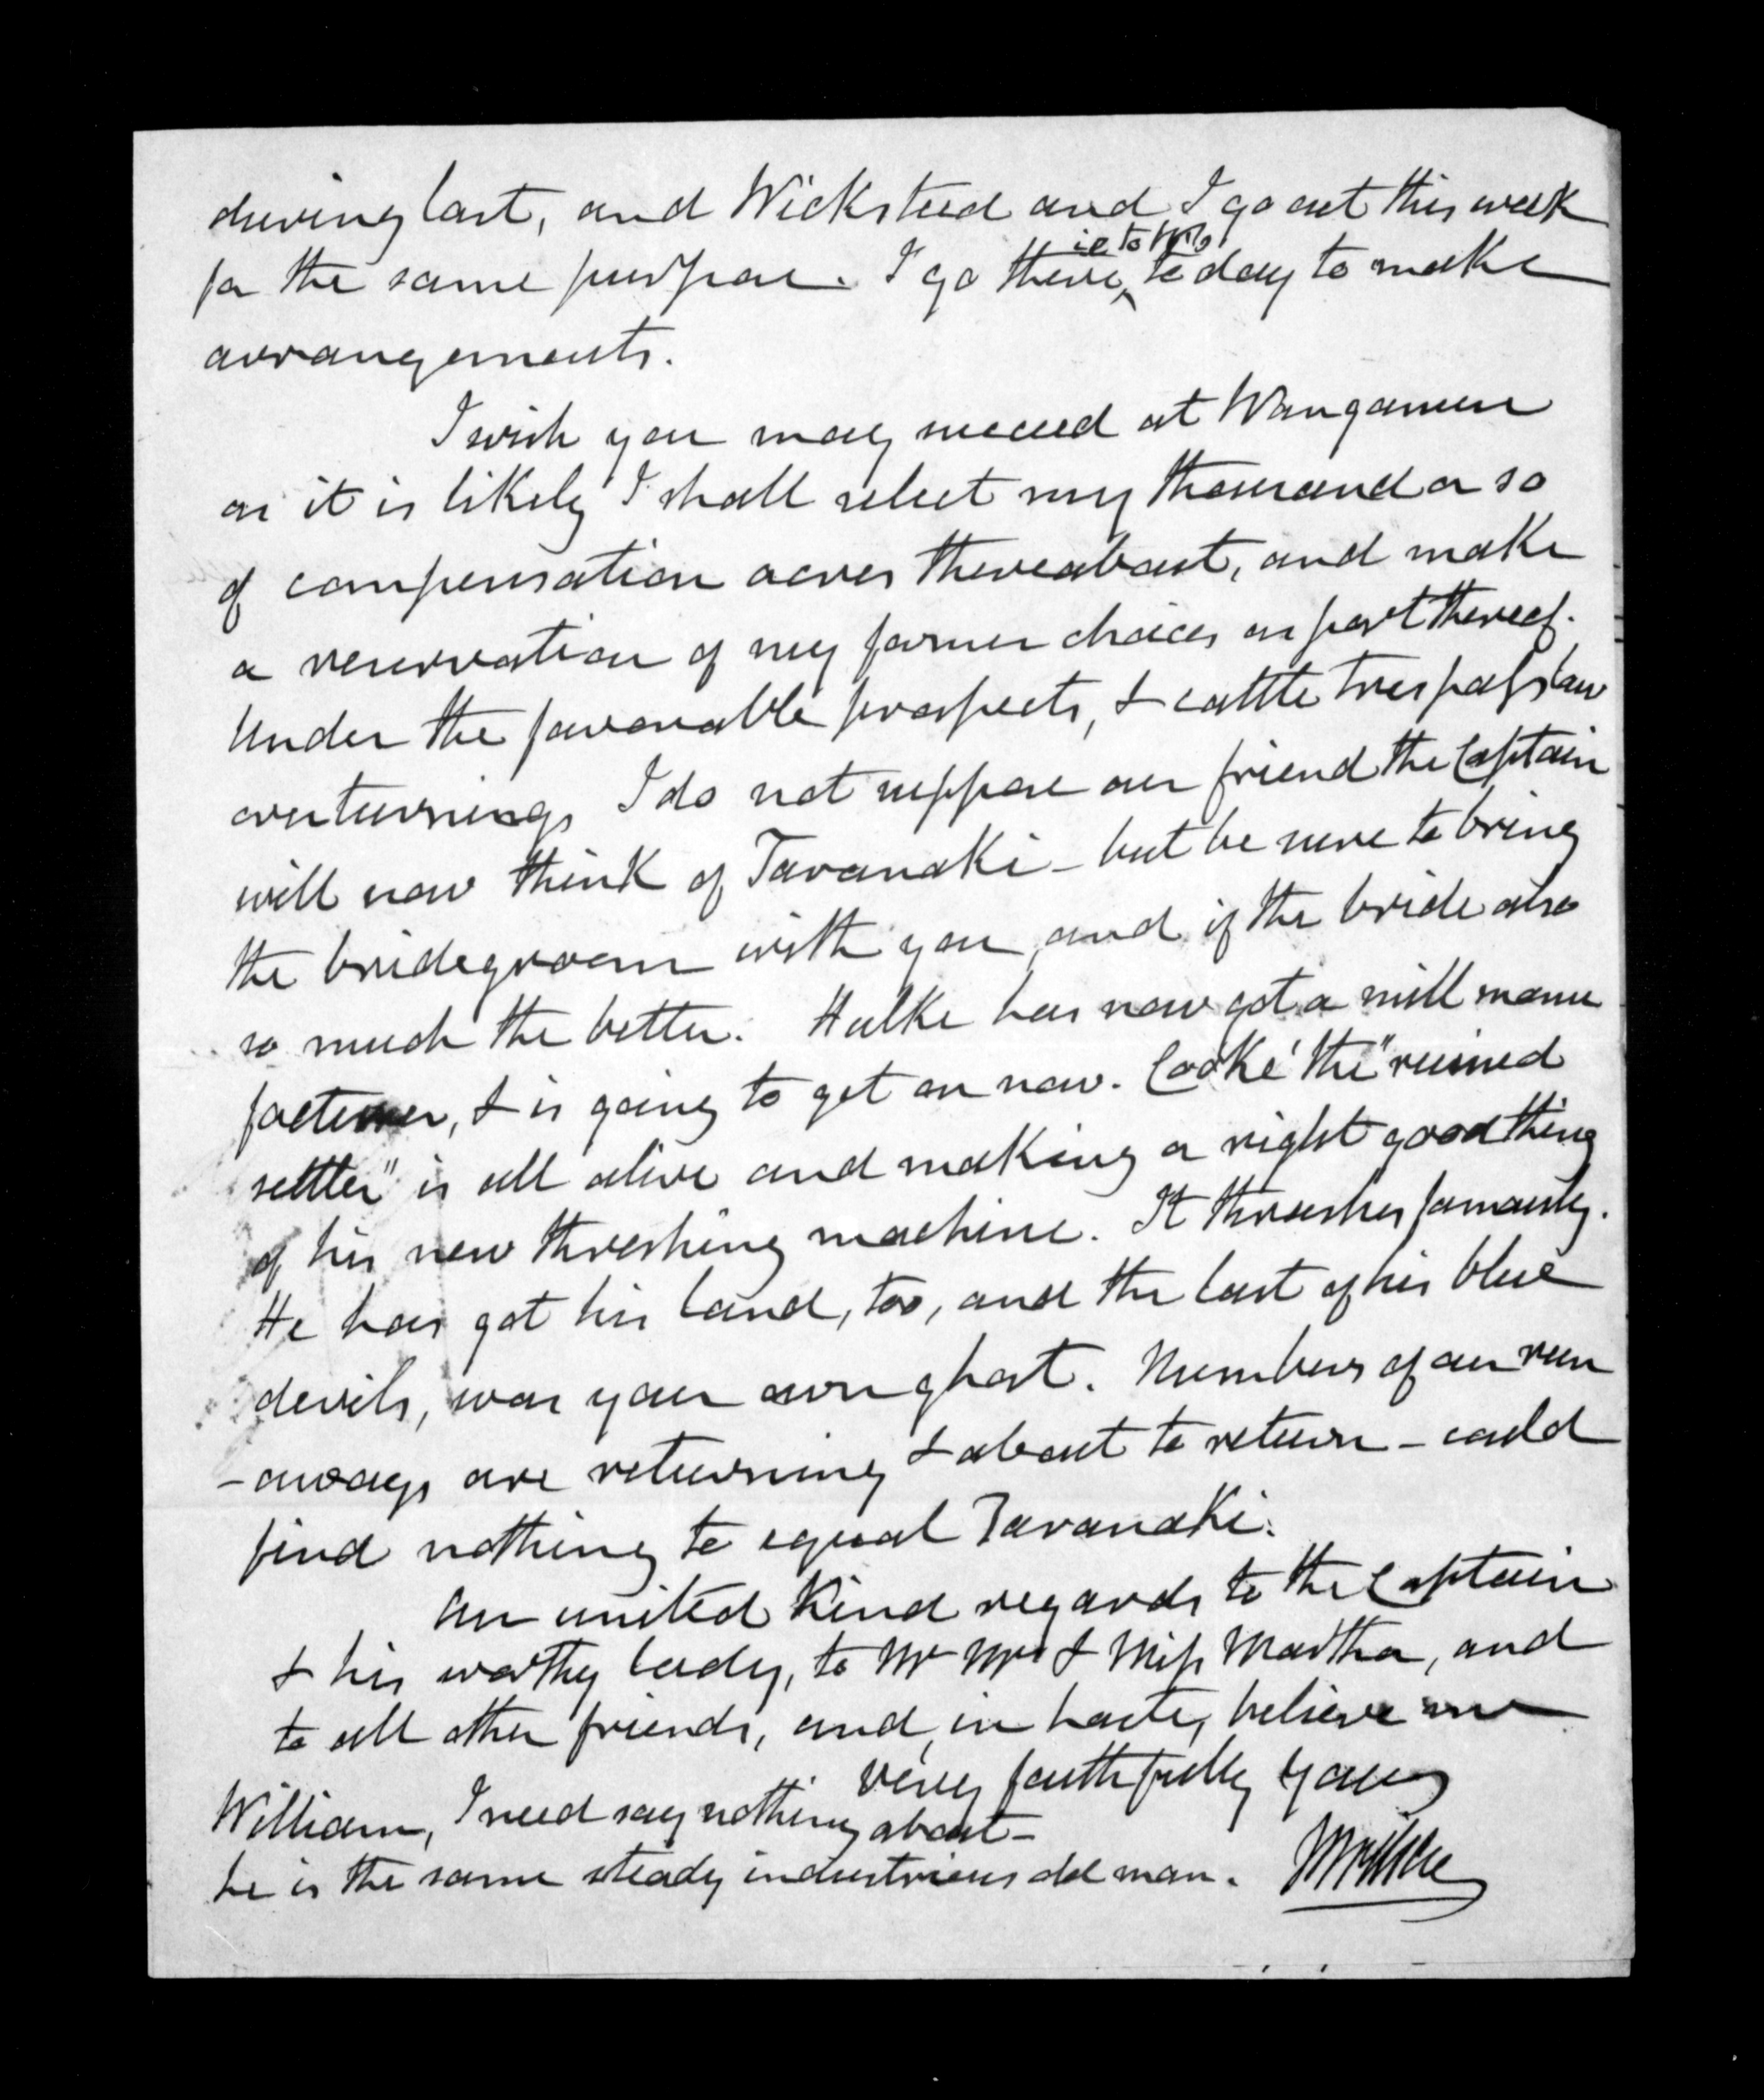 during last, and Wicksteed and I go out this week
for the same purpose. I go there, ie to to day to make
arrangements.
I wish you may succeed at Wanganui
as it is likely I shall select my thousand or so
of compensation acres thereabout, and make
a reservation of my former choices as part thereof.
Under the favorable prospects, & cattle trespass law
overturnings I do not suppose our friend the Captain
will now think of Taranaki - but be sure to bring
the bridegroom with you and if the bride also
so much the better. Hulke has now got a mill manu
facturer, & is going to get on now. Cooke "the "ruined
settler" is all alive and making a right good thing
of his new threshing machine. It thrashes famously.
He has got his land, too, and the last of his blue
devils, was your own ghost. Numbers of our run
-aways are returning & about to return - could
find nothing to equal Taranaki.
Our united kind regards to the Captain
& his worthy lady, to Mr Mrs & Miss Martha, and
to all other friends, and, in haste, believe me
very faithfully yours
William, I need say nothing about -
he is the same steady industrious old man.